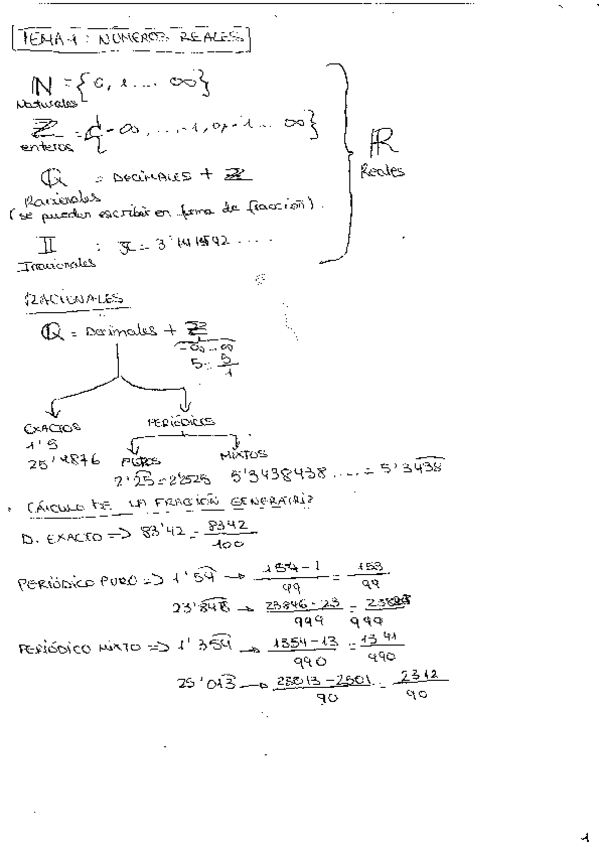 TEMA 1: NÚMEROS REALES
ℕ = {0, 1 .... ∞}
Naturales
ℤ = {-∞, ..., -1, 0, 1 ... ∞}
enteros
ℝ
Reales
ℚ = DECIMALES + ℤ
Racionales
(se pueden escribir en forma de fracción).
𝕀 : π = 3'141592 .....
Irracionales
RACIONALES
ℚ = Decimales + ℤ
-∞...∞
5 = 5/1
EXACTOS
1'5
25'4876
PERIÓDICOS
PUROS
2'25 = 2'2525
MIXTOS
5'3438438 ..... = 5'3438
CÁLCULO DE LA FRACCIÓN GENERATRIZ
D. EXACTO => 83'42 = 8342/100
PERIÓDICO PURO => 1'54 → 154-1/99 = 153/99
23'846 → 23846-23/999 =
PERIÓDICO MIXTO => 1'354 → 1354-13/990 = 1341/990
25'013 → 25013-2501/90 = 2312/90
1